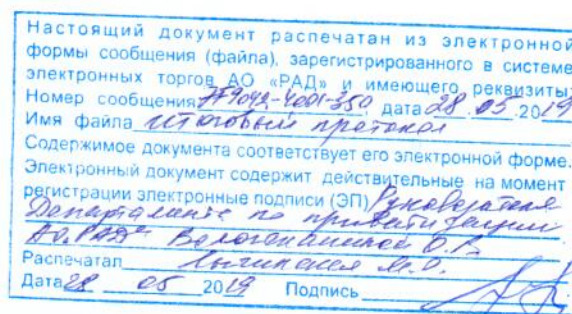 Настоящий документ распечатан из электронной
формы сообщения (файла), зарегистрированного в системе
электронных торгов АО «РАД» и имеющего реквизиты:
Номер сообщения дата 28.05.2019
Имя файла итоговый протокол
Содержимое документа соответствует его электронной форме.
Электронный документ содержит действительные на момент
регистрации электронные подписи (ЭП) Руководителя
Департамента по приватизации
АО "РАД" О.В.
Распечатал М.О.
Дата 28 05 2019 Подпись